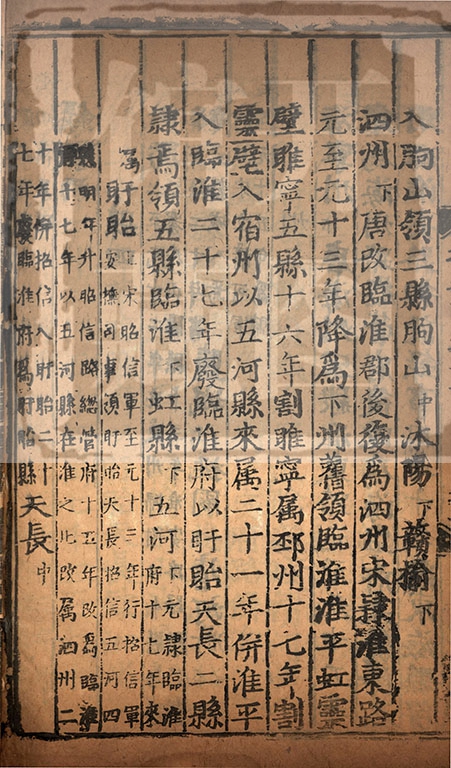 入朐山領三縣朐山中沭陽下贛榆下
泗州下唐改臨淮郡後復爲泗州宋隸淮東路
元至元十三年降爲下州舊領臨淮淮平虹靈
壁睢寧五縣十六年割睢寧属邳州十七年割
靈壁入宿州以五河縣來属二十一年併淮平
入臨淮二十七年廢臨淮府以盱眙天長二縣
隸焉領五縣臨淮下虹縣下五河下元隸臨淮
府十七年來
属盱眙宋昭信軍至元十三年行招信軍
安撫司事領盱眙天長招信五河四
縣明年升昭信路總管府十五年改爲臨淮
府十七年以五河縣在淮之北改属泗州二
十年併招信入盱眙二十
七年廢臨淮府爲盱眙縣天長中